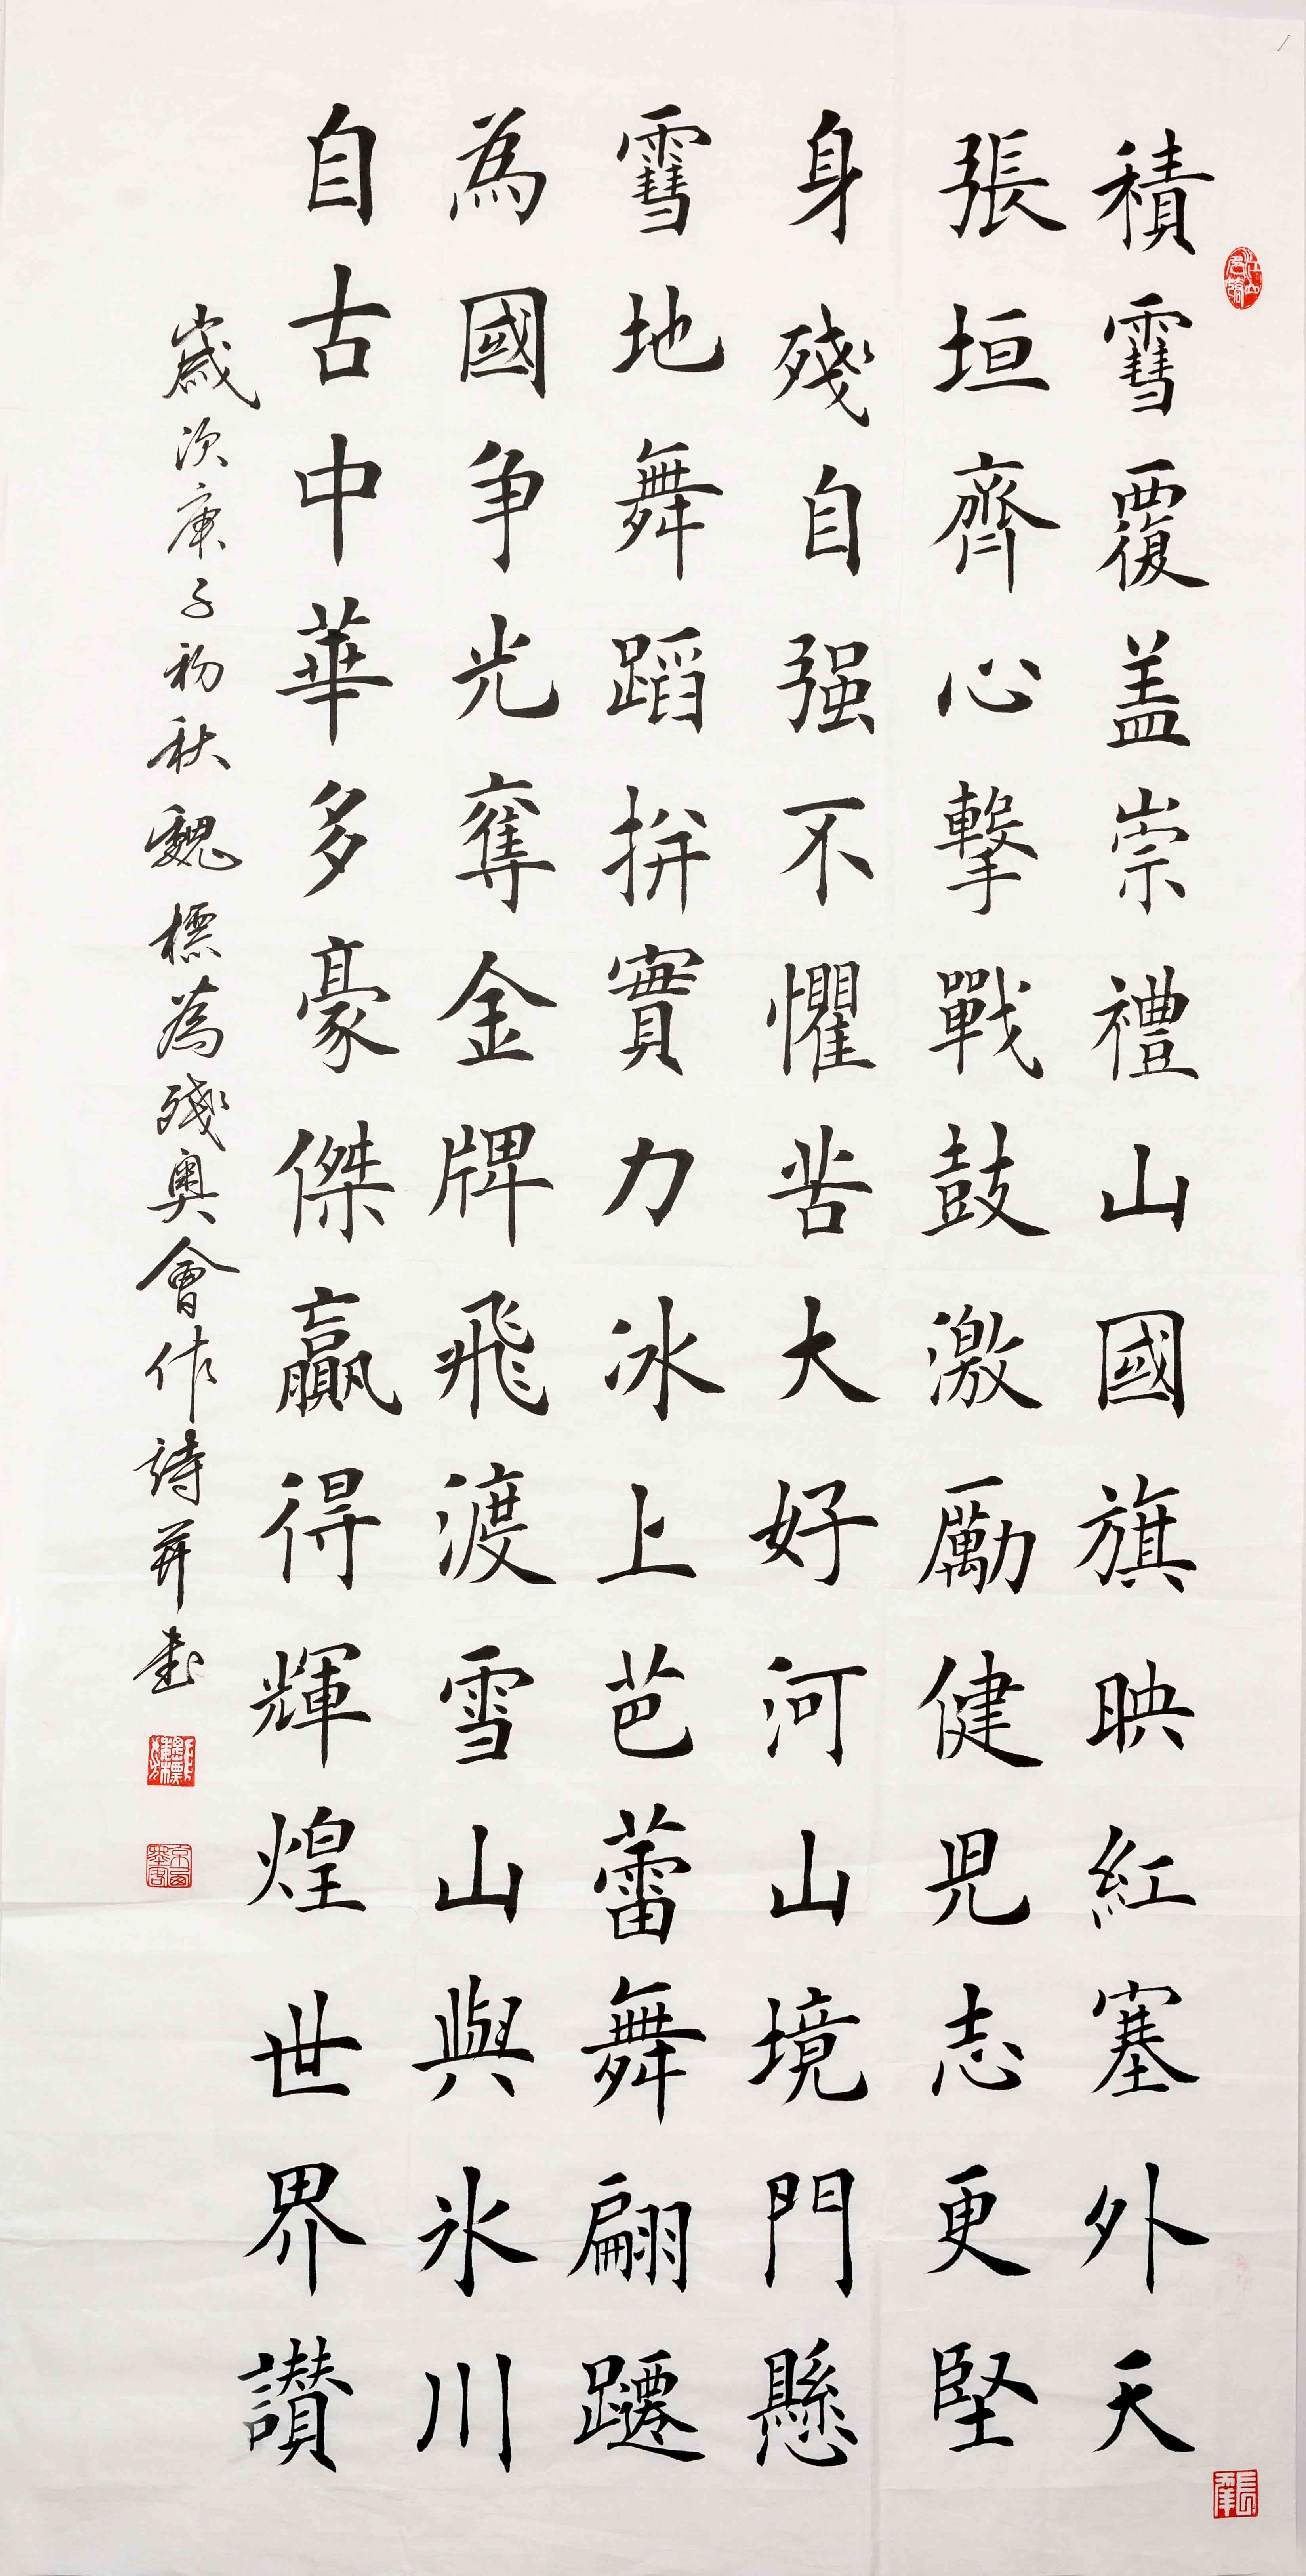 積雪覆盖崇禮山國旗映紅塞外天
張垣齊心擊戰鼓激勵健児志更堅
身殘自强不懼苦大好河山境門懸
雪地舞蹈拚實力冰上芭蕾舞翩躚
為國争光奪金牌飛渡雪山與氷川
自古中華多豪傑贏得輝煌世界讃
歲次庚子初秋魏標為殘奧會作詩并書